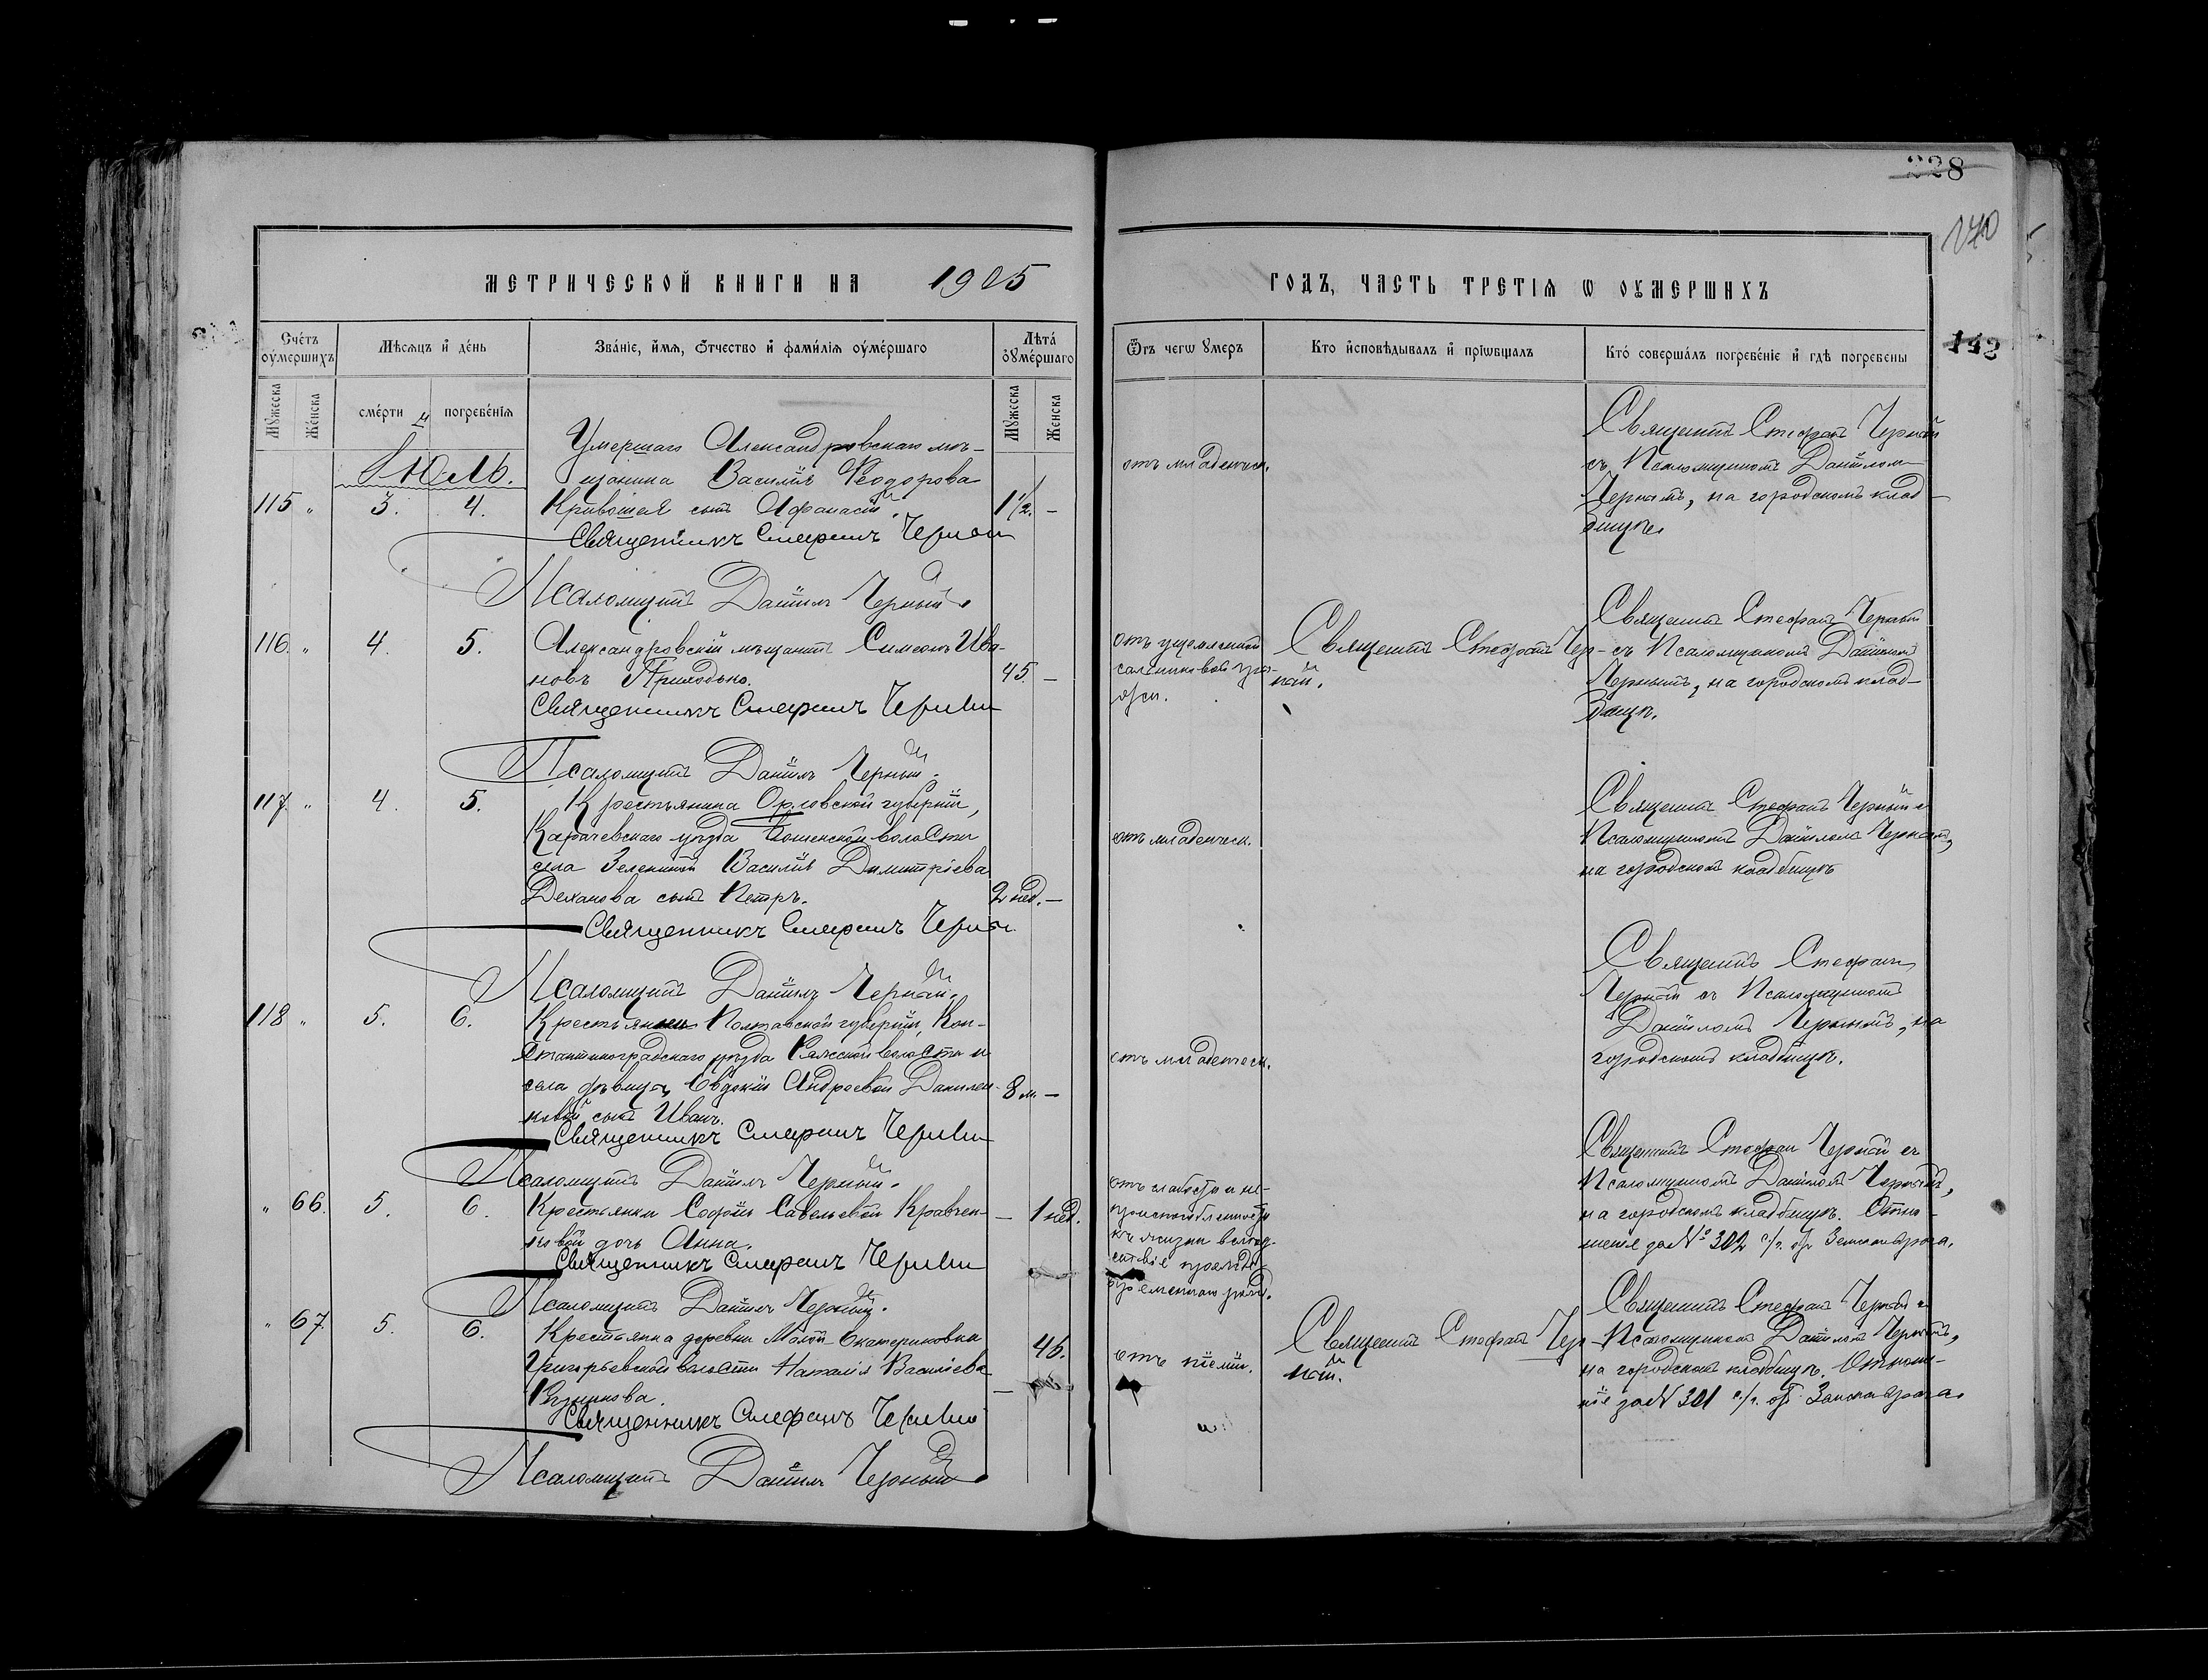 228
140
142
МЕТРИЧЕСКОЙ КНИГИ НА 1905
ГОДЪ, ЧАСТЬ ТРЕТІѦ Ѡ ОУМЕРШИХЪ
Счетъ оумершихъ
Мѣсѧцъ и день
Званіе, имѧ, ѿчество и фамиліѧ оумершаго
Лѣта оумершаго
Ѿъ чегѡ умеръ
Кто исповѣдывалъ и пріѡбщалъ
Кто совершалъ погребеніе и гдѣ погребены
Мужеска
Женска
смерти
погребеніѧ
Мужеска
Женска
Іюль.
Умершаго Александровскаго мѣ-
щанина Василія Ѳеодорова
115 " 3. 4. Кривошея сынъ Афанасій. 1 1/2. –
Священникъ Стефанъ Черный
Псаломщикъ Даніилъ Черный.
отъ младенческ.
Священникъ Стефанъ Черный
съ Псаломщикомъ Даніиломъ
Чернымъ, на городскомъ клад-
бищѣ.
116. " 4. 5. Александровскій мѣщанинъ Симеонъ Ива-
новъ Приходько. 45. –
Священникъ Стефанъ Черный
Псаломщикъ Даніилъ Черный.
отъ ущемленной
сальниковой гры-
жи.
Священникъ Стефанъ Чер-
ный.
Священникъ Стефанъ Черный
съ Псаломщикомъ Даніиломъ
Чернымъ, на городскомъ клад-
бищѣ.
117. " 4. 5. Крестьянина Орловской губерніи,
Карачевскаго уѣзда волости
села Василія Димитріева
сынъ Петръ. 2 нед. –
Священникъ Стефанъ Черный
Псаломщикъ Даніилъ Черный.
отъ младенческ.
Священникъ Стефанъ Черный съ
Псаломщикомъ Даніиломъ Чернымъ,
на городскомъ кладбищѣ
118 " 5. 6. Полтавской губерніи, Кон-
стантиноградскаго уѣзда волости и
села дѣвицы Евдокіи Андреевой Данилен-
ковой сынъ Иванъ. 8 м. –
Священникъ Стефанъ Черный
Псаломщикъ Даніилъ Черный.
отъ младенческ.
Священникъ Стефанъ
Черный съ Псаломщикомъ
Даніиломъ Чернымъ, на
городскомъ кладбищѣ.
" 66. 5. 6. Крестьянки Софіи Савельевой Кравчен-
ковой дочь Анна. – 1 нед.
Священникъ Стефанъ Черный
Псаломщикъ Даніилъ Черный.
отъ слабости и не-
приспособленности
къ жизни вслѣд-
ствіе преждев-
ременныхъ род.
Священникъ Стефанъ Черный съ
Псаломщикомъ Даніиломъ Чернымъ,
на городскомъ кладбищѣ. Отно-
шеніе за № 302 с/г. отъ Земскаго врача.
" 67. 5. 6. Крестьянка деревни Малой Екатериновки
Григорьевской волости Наталія Василіева
– 46.
Священникъ Стефанъ Черный
Псаломщикъ Даніилъ Черный
отъ піеміи.
Священникъ Стефанъ Чер-
ный.
Священникъ Стефанъ Черный съ
Псаломщикомъ Даніиломъ Чернымъ,
на городскомъ кладбищѣ. Отноше-
ніе за № 301 с/г. отъ Земскаго врача.